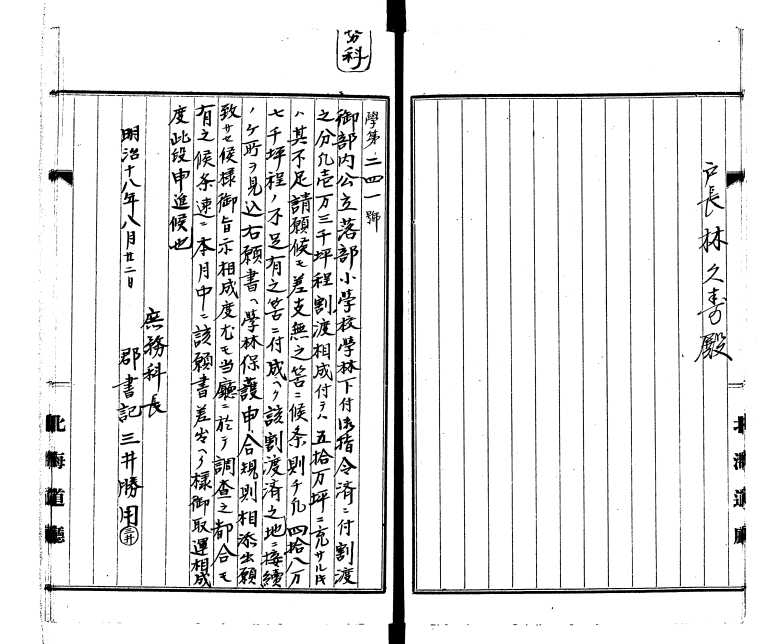 戸長林久壽殿
北海道廳
務科
學第二四一號
御部内公立落部小學校学林下付御指令済ニ付割渡
之分凡壱万三千坪程割渡相成付テハ五拾万坪ニ充サル片
ハ其不足請願候モ差支無之筈ニ候条則チ凡四拾八万
七千坪程ノ不足有之筈ニ付成ヘク該割渡済之地ニ接続
ノケ所ヲ見込右願書ヘ學林保護申合規則相添出願
致サセ候様御旨示相成度尤モ当廳ニ於テ調査之都合モ
有之候条速ニ本月中ニ該願書差出ヘク様御取運相成
度此段申進候也
明治十八年八月廿二日
庶務科長
郡書記三井勝用
三井
北海道廳